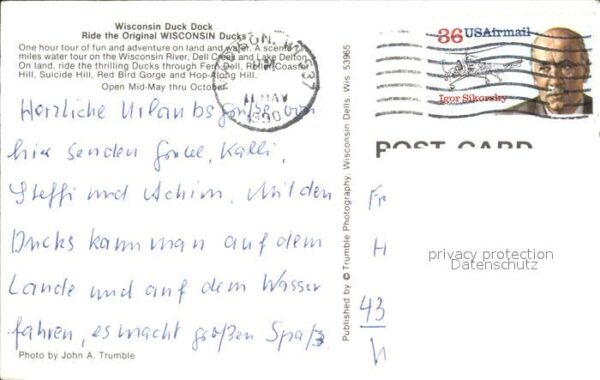 Wisconsin Duck Dock
Ride the Original WISCONSIN Ducks
One hour tour of fun and adventure on land and water. A scenic
miles water tour on the Wisconsin River, Dell Creek and Lake Delton.
On land, ride the thrilling Ducks through Fern Dell, Roller Coaster
Hill, Suicide Hill, Red Bird Gorge and Hop-Along Hill.
Open Mid-May thru October
Herzliche Urlaubsgrüße von
hier senden Kalli,
Steffi und Achim. Mit den
Ducks kann man auf dem
Lande und auf dem Wasser
fahren, es macht großen Spaß
Photo by John A. Trumble
Published by © Trumble Photography, Wisconsin Dells, Wis. 53965
36 USAirmail
Igor Sikorsky
POST CARD
Fr
H
43
privacy protection
Datenschutz